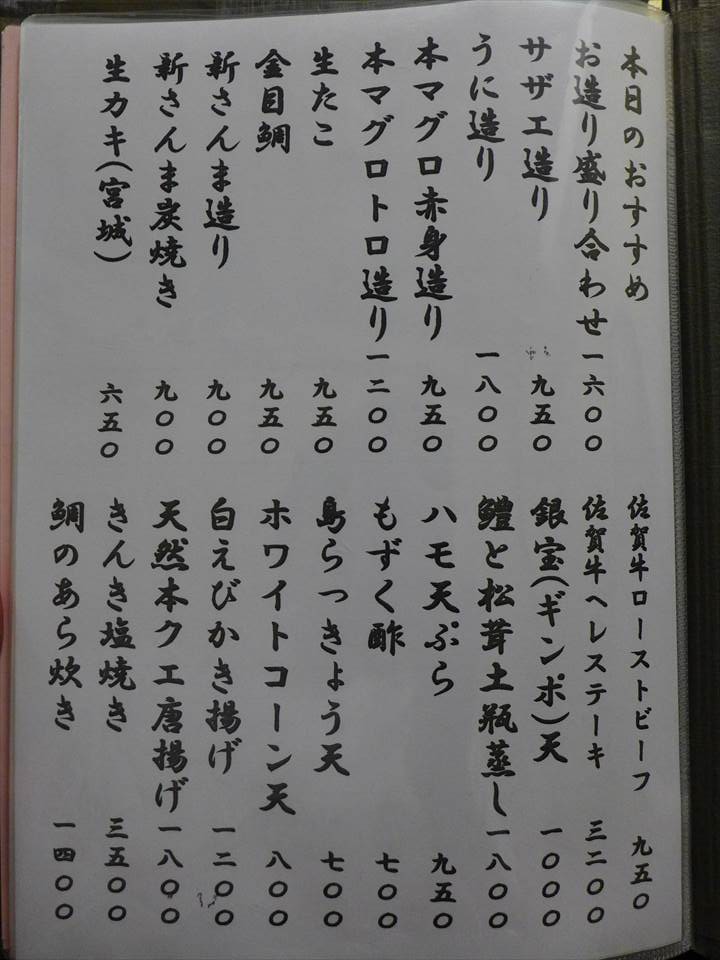 本日のおすすめ
お造り盛り合わせ一六〇〇
サザエ造り 九五〇
うに造り 一八〇〇
本マグロ赤身造り 九五〇
本マグロトロ造り一二〇〇
生たこ 九五〇
金目鯛 九五〇
新さんま造り 九〇〇
新さんま炭焼き 九〇〇
生カキ(宮城) 六五〇
佐賀牛ローストビーフ 九五〇
佐賀牛ヘレステーキ 三二〇〇
銀宝(ギンポ)天 一〇〇〇
鱧と松茸土瓶蒸し一八〇〇
ハモ天ぷら 九五〇
もずく酢 七〇〇
島らっきょう天 七〇〇
ホワイトコーン天 八〇〇
白えびかき揚げ 一二〇〇
天然本クエ唐揚げ一八〇〇
きんき塩焼き 三五〇〇
鯛のあら炊き 一四〇〇